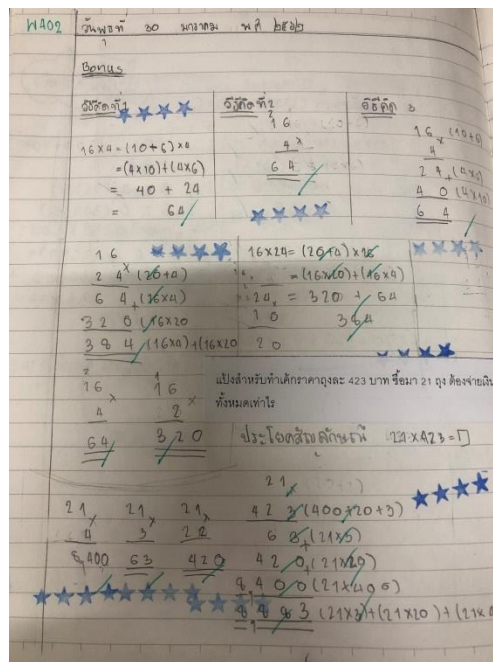 WA02 วันพุธที่ 30 มกราคม พ.ศ. ๒๕๖๒
Bonus
วิธีคิดที่ 1
16×4 = (10+6)×4
= (4×10)+(4×6)
= 40 + 24
= 64
วิธีคิดที่ 2
2
16
4 ×
64
วิธีคิด 3
16 × (10+6)
4
24 + (4×6)
40 (4×10)
64
16
24 × (20+4)
64 + (16×4)
320 (16×20
384 (16×4)+(16×20
16×24 = (20+4)×16
= (16×20)+(16×4)
= 320 + 64
384
24 ×
10
20
2
16 ×
4
64
1
16 ×
2
320
แป้งสำหรับทำเค้กราคาถุงละ 423 บาท ซื้อมา 21 ถุง ต้องจ่ายเงิน
ทั้งหมดเท่าไร
ประโยคสัญลักษณ์ 21×423 = □
21 ×
4
8,400
21 ×
3
63
21 ×
22
420
21 ×
423 (400+20+3)
63 + (21×3)
420 (21×20)
8400 (21×400)
8,883 (21×3)+(21×20)+(21×4